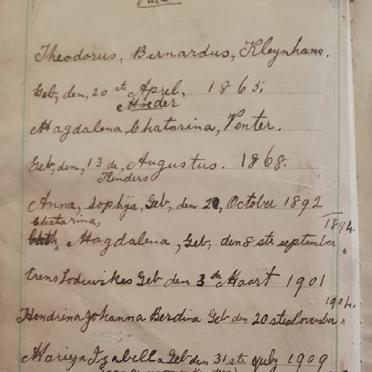 Theodorus, Bernardus, Kleynhans.
Geb, den, 20 ste Aprel, 1865.
Moeder
Magdalena, Chatarina, Venter.
Geb, den, 13 de, Augustus. 1868.
Kinders
Anna, Sophya, Geb, den 20, October 1892
Chatarina, 1894.
Magdalena, Geb, den 8 ste september
Geb den 3 de Maart 1901
1904.
Hendrina Johanna Berdina Geb den 20 ste November
Mariya Izabella Geb den 31 ste July 1909